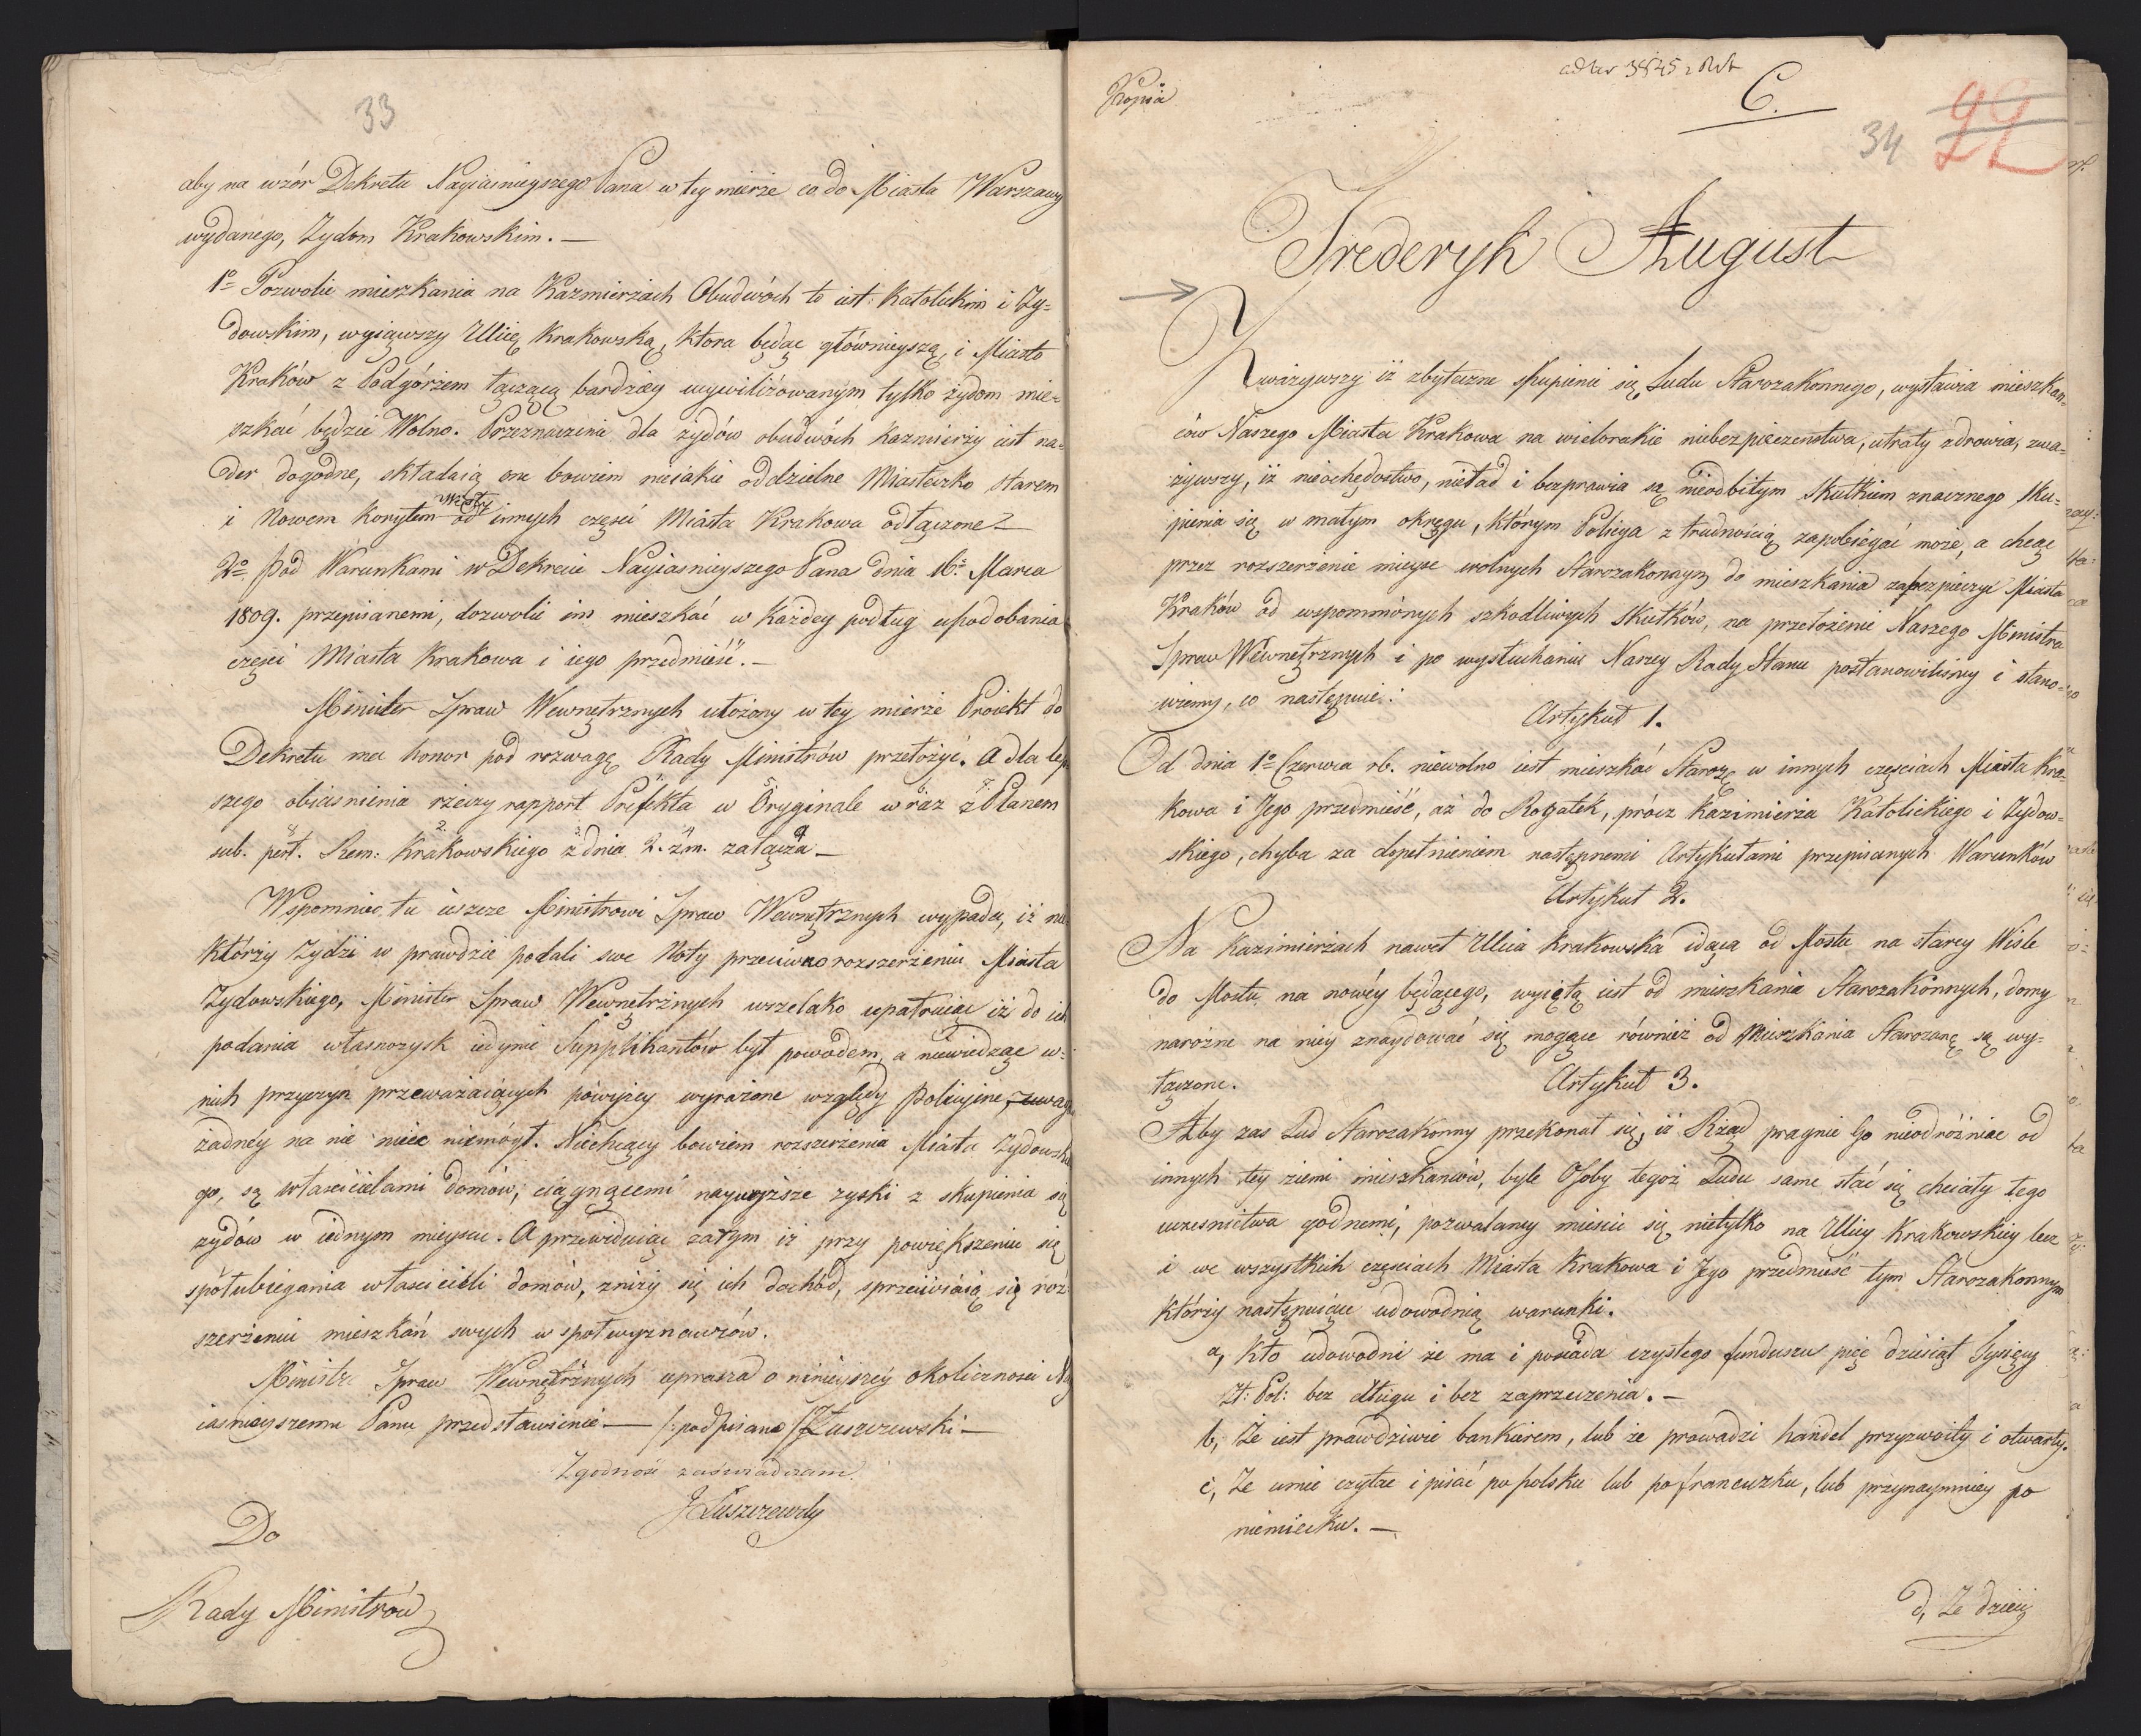 33
aby na wzór Dekretu Nayiasnieyszego Pana w tey mierze co do Miasta Warszawy
wydanego, Zydom Krakowskim. —
1o Pozwolić mieszkania na Kazmierzach Obudwóch to iest: Katolickim i Zy-
dowskim, wyiąwszy Ulicę Krakowską, ktora będąc głównieyszą, i Miasto
Kraków z Podgórzem łączącą bardziey ucywilizowanym tylko żydom mie-
szkać będzie Wolno. Przeznaczenie dla żydów obudwóch Kazmierzy iest na-
der dogodne, składaią one bowiem nieiakie oddzielne Miasteczko starem
i Nowem Korytem Wisły od innych części Miasta Krakowa odłączone
2o Pod Warunkami w Dekrecie Nayiasnieyszego Pana dnia 16. Marca
1809. przepisanemi, dozwolić im mieszkać w każdey podług upodobania
części Miasta Krakowa i iego przedmieść. —
Minister Spraw Wewnętrznych ułożony w tey mierze Proiekt do
Dekretu ma honor pod rozwagę Rady Ministrów przełożyć. A dla lep
szego obiasnienia rzeczy rapport Prefekta w Oryginale wraz z Planem
sub. pet. Rem: Krakowskiego z dnia 2. z.m. załącza —
Wspomnieć tu ieszcze Ministrowi Spraw Wewnętrznych wypada, iż nie
którzy Zydzi w prawdzie podali swe Noty przeciwko rozszerzeniu Miasta
Zydowskiego, Minister Spraw Wewnętrznych wszelako upatruiąc iż do ich
podania własnozysk iedynie Supplikantów był powodem, a niewiedząc w-
nich przyczyn przeważaiących powyżey wyrażone względy Policyine, uwagi
żadnéy na nie mieć niemógł. Niechcący bowiem rozszerzenia Miasta Zydowskie
go, są właścicielami domów, ciągnącemi naywyższe zyski z skupienia się
zydów w iednym mieyscu. A przewiduiąc zatym iż przy powiększeniu się
spółubiegania właścicieli domów, zniży się ich dochód, sprzeciwiaią się roz-
szerzeniu mieszkań swych wspołwyznawców.
Ministr Spraw Wewnętrznych uprasza o ninieyszéy okoliczności Nay
iasnieyszemu Panu przedstawienie — /: podpisano / JŁuszczewski —
Zgodność zaświadczam.
JŁuszczewski
Do
Rady Ministrów
Kopia
C.
34
Frederyk August
Zważywszy iż zbyteczne skupienie się Ludu Starozakonnego, wystawia mieszkań-
ców Naszego Miasta Krakowa na wielorakie niebezpieczenstwa, utraty zdrowia, zwa-
żywszy, iż nieochędostwo, nieład i bezprawia są nieodbitym Skutkiem znacznego sku-
pienia się w małym okręgu, którym Policya z trudnością zapobiegać może, a chcąc
przez rozszerzenie mieysc wolnych Starozakonnym do mieszkania zabezpieczyć Miasto
Kraków od wspomnionych szkodliwych Skutków, na przełożenie Naszego Ministra
Spraw Wewnętrznych i po wysłuchaniu Naszey Rady Stanu postanowiliśmy i stano-
wiemy, co następuie:
Artykuł 1.
Od dnia 1o Czerwca rb. niewolno iest mieszkać Staroz. w innych częściach Miasta Kra-
kowa i Jego przedmieść, aż do Rogatek, prócz Kazimierza Katolickiego i Zydow-
skiego, chyba za dopełnieniem następnemi Artykułami przepisanych Warunków
Artykuł 2.
Na Kazimierzach nawet Ulica Krakowska idąca od Mostu na starey Wiśle
do Mostu na nowéy będącego, wyiętą iest od mieszkania Starozakonnych, domy
narożne na niey znaydować się mogące również od Mieszkania Starozak. są wy-
łączone.
Artykuł 3.
Aby zas Lud Starozakonny przekonał się, iż Rząd pragnie Go nieodróżniać od
innych tey ziemi mieszkańców, byle Osoby tegoż Ludu same stać się chciały tego
uczesnictwa godnemi, pozwalamy mieścić się nietylko na Ulicy Krakowskiey lecz
i we wszystkich częściach Miasta Krakowa i Jego przedmieść tym Starozakonnym
którzy następuiące udowodnią warunki.
a, Kto udowodni że ma i posiada czystego funduszu pięć dziesiąt Tysięcy
Zł: Pol: bez długu i bez zaprzeczenia. —
b, Że iest prawdziwie bankierem, lub że prowadzi handel przyzwoity i otwarty.
c, Ze umie czytac i pisać po polsku lub po francuzku, lub przynaymniey po
niemiecku. —
d, Ze dzieci